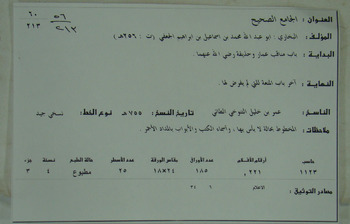 ٦٠
٢١٣
٥٦
٢١٣
العنوان : الجامع الصحيح
المؤلف : البخاري : ابو عبد الله محمد بن اسماعيل بن ابراهيم الجعفي (ت : ٢٥٦هـ)
البداية : باب مناقب عمار وحذيفة رضي الله عنهما.
النهاية : آخر باب المتعة للتي لم يفرض لها.
الناسخ : عمر بن خليل المتوجي
تاريخ النسخ : ٧٥٥هـ
نوع الخط : نسخي جيد
ملاحظات : المخطوط بحالة لا بأس بها، وأسماء الكتب والأبواب بالمداد الأحمر.
حاسب
أرقام الأفلام
عدد الأوراق
مقاس الورقة
عدد الأسطر
حالة الطبع
نسخة
جزء
١١٢٣
٢٢١
١٨٥
٢٤×١٨
٢٥
مطبوع
٤
٣
مصادر التوثيق :
الاعلام
٦